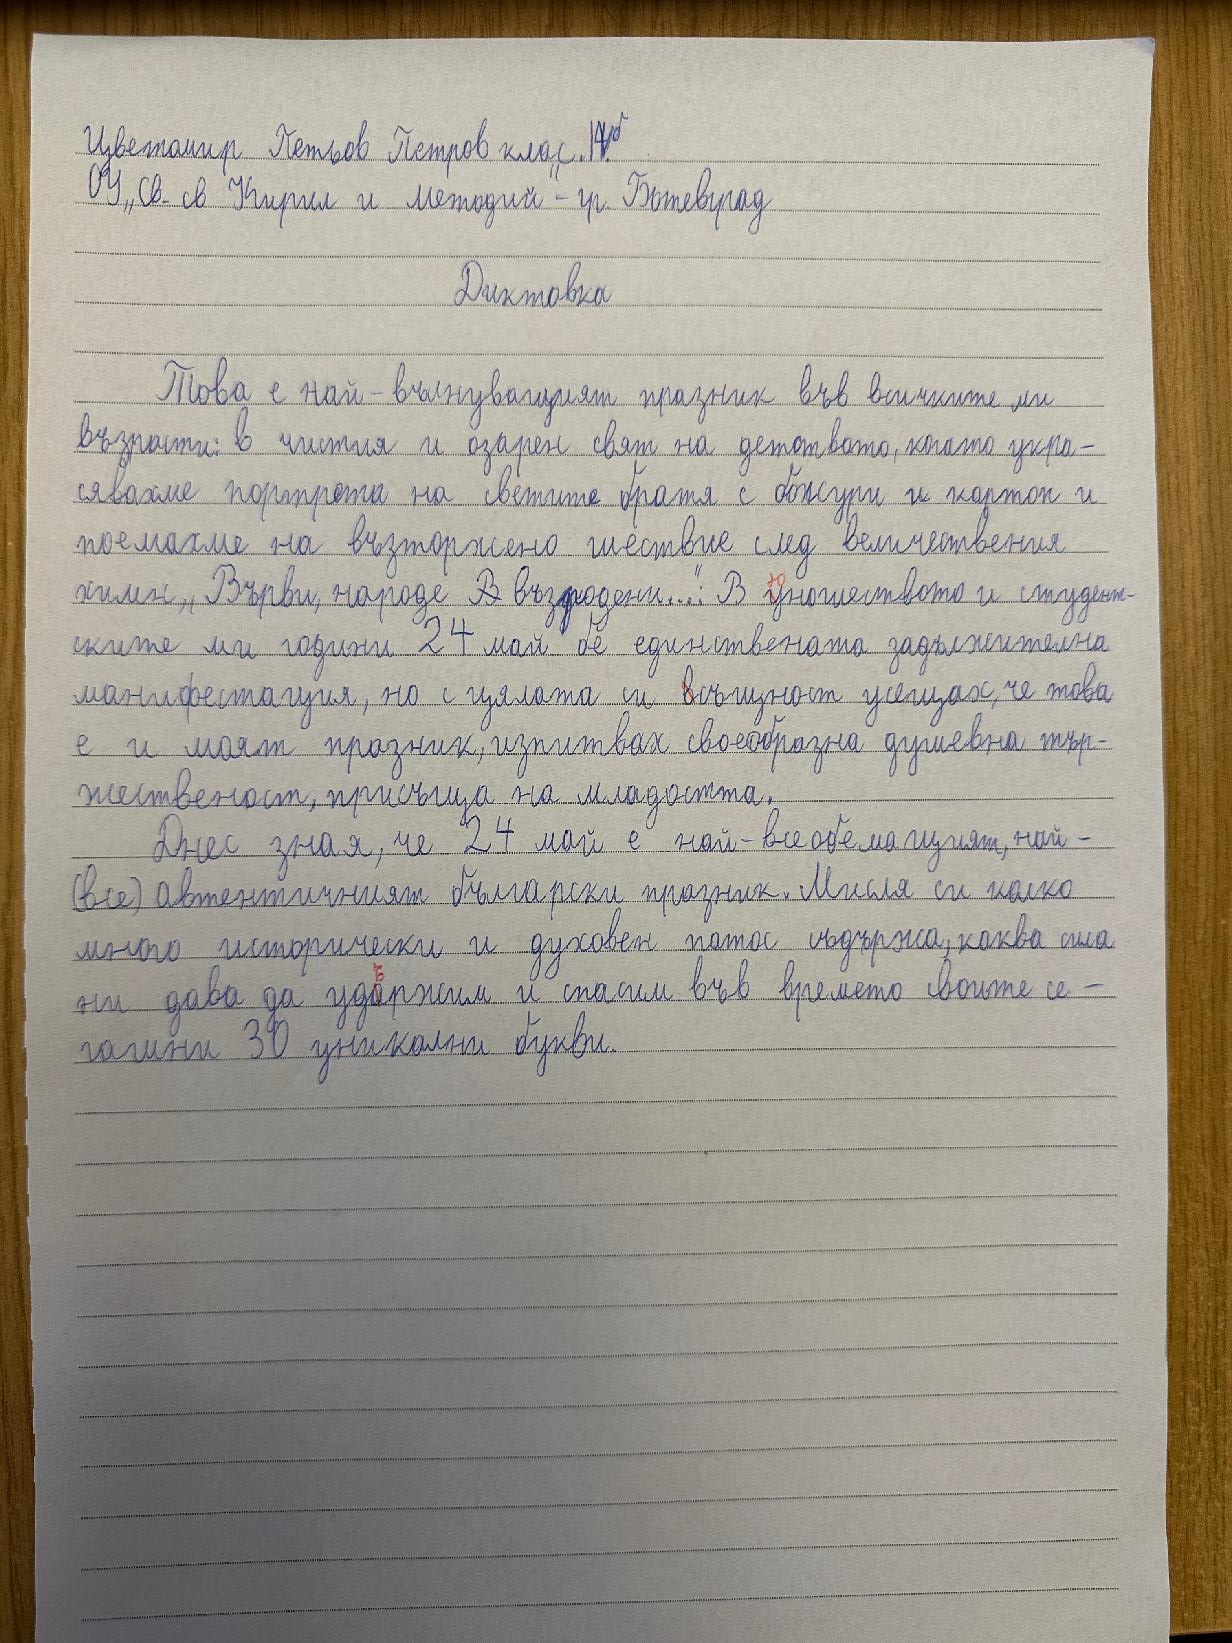 Цветомир Петьов Петров клас. IVб
ОУ „Св. св Кирил и Методий" - гр. Ботевград
Диктовка
Това е най-вълнуващият празник във всичките ми
възрасти: в чистия и озарен свят на детството, когато укра-
сявахме портрета на светите братя с божури и картон и
поемахме на възторжено шествие след величествения
химн „Върви, народе възродени...". В юношеството и студент-
ските ми години 24 май бе единствената задължителна
манифестация, но с цялата си същност усещах, че това
е и моят празник, изпитвах своеобразна душевна тър-
жественост, присъща на младостта.
Днес зная, че 24 май е най-всеобемащият, най-
(все) автентичният български празник. Мисля си колко
много исторически и духовен патос съдържа, каква сила
ни дава да удържим и спасим във времето своите се-
гашни 30 уникални букви.